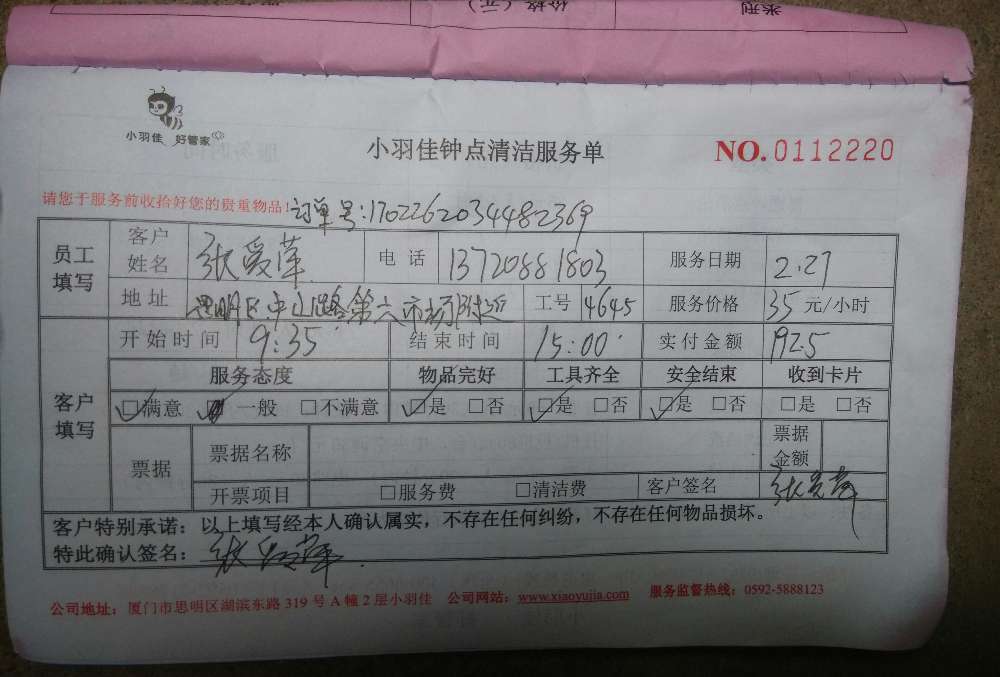 类型
价格（元）
小羽佳 好管家
小羽佳钟点清洁服务单
NO.0112220
请您于服务前收拾好您的贵重物品!订单号:1702262034482369
员工填写 客户姓名 张爱萍 电话 13720881803 服务日期 2.27
地址 思明区中山路第六市场附近 工号 4645 服务价格 35元/小时
开始时间 9:35 结束时间 15:00 实付金额 192.5
客户填写 服务态度 物品完好 工具齐全 安全结束 收到卡片
□满意 □一般 □不满意 □是 □否 □是 □否 □是 □否 □是 □否
票据 票据名称 票据金额
开票项目 □服务费 □清洁费 客户签名 张爱萍
客户特别承诺：以上填写经本人确认属实，不存在任何纠纷，不存在任何物品损坏。
特此确认签名：张爱萍
公司地址：厦门市思明区湖滨东路319号A幢2层小羽佳 公司网站：www.xiaoyujia.com 服务监督热线：0592-5888123